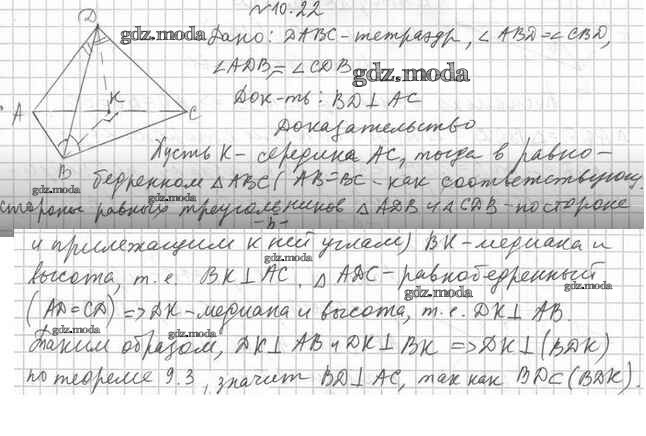 №10.22
Дано: DABC-тетраэдр, ∠ABD=∠CBD,
∠ADB=∠CDB
Док-ть: BD⊥AC
Доказательство
D
A
K
C
B
Пусть K-середина AC, тогда в равно-
бедренном △ABC (AB=BC-как соответствующ.
стороны равных треугольников △ADB и △CDB-по стороне
-b-
и прилежащим к ней углам) BK-медиана и
высота, т.е. BK⊥AC. △ADC-равнобедренный
(AD=CD) =>DK-медиана и высота, т.е. DK⊥AB.
Таким образом, DK⊥AB и DK⊥BK =>DK⊥(BDK)
по теореме 9.3, значит BD⊥AC, так как BD⊂(BDK).
gdz.moda
gdz.moda
gdz.moda
gdz.moda
gdz.moda
gdz.moda
gdz.moda
gdz.moda
gdz.moda
gdz.moda